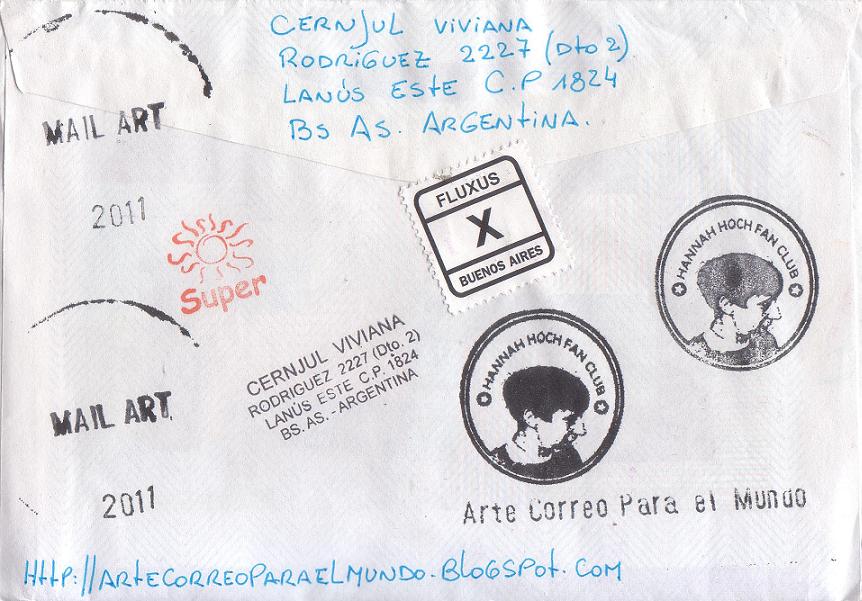 CERNJUL VIVIANA
RODRIGUEZ 2227 (Dto 2)
LANÚS ESTE C.P 1824
BS AS. ARGENTINA.
MAIL ART
2011
Super
FLUXUS
X
BUENOS AIRES
HANNAH HOCH FAN CLUB
CERNJUL VIVIANA
RODRIGUEZ 2227 (Dto. 2)
LANÚS ESTE C.P. 1824
BS. AS. - ARGENTINA
HANNAH HOCH FAN CLUB
MAIL ART
2011
Arte Correo Para el Mundo
HttP://ARTECORREOPARAELMUNDO.BLOGSPOt.COM